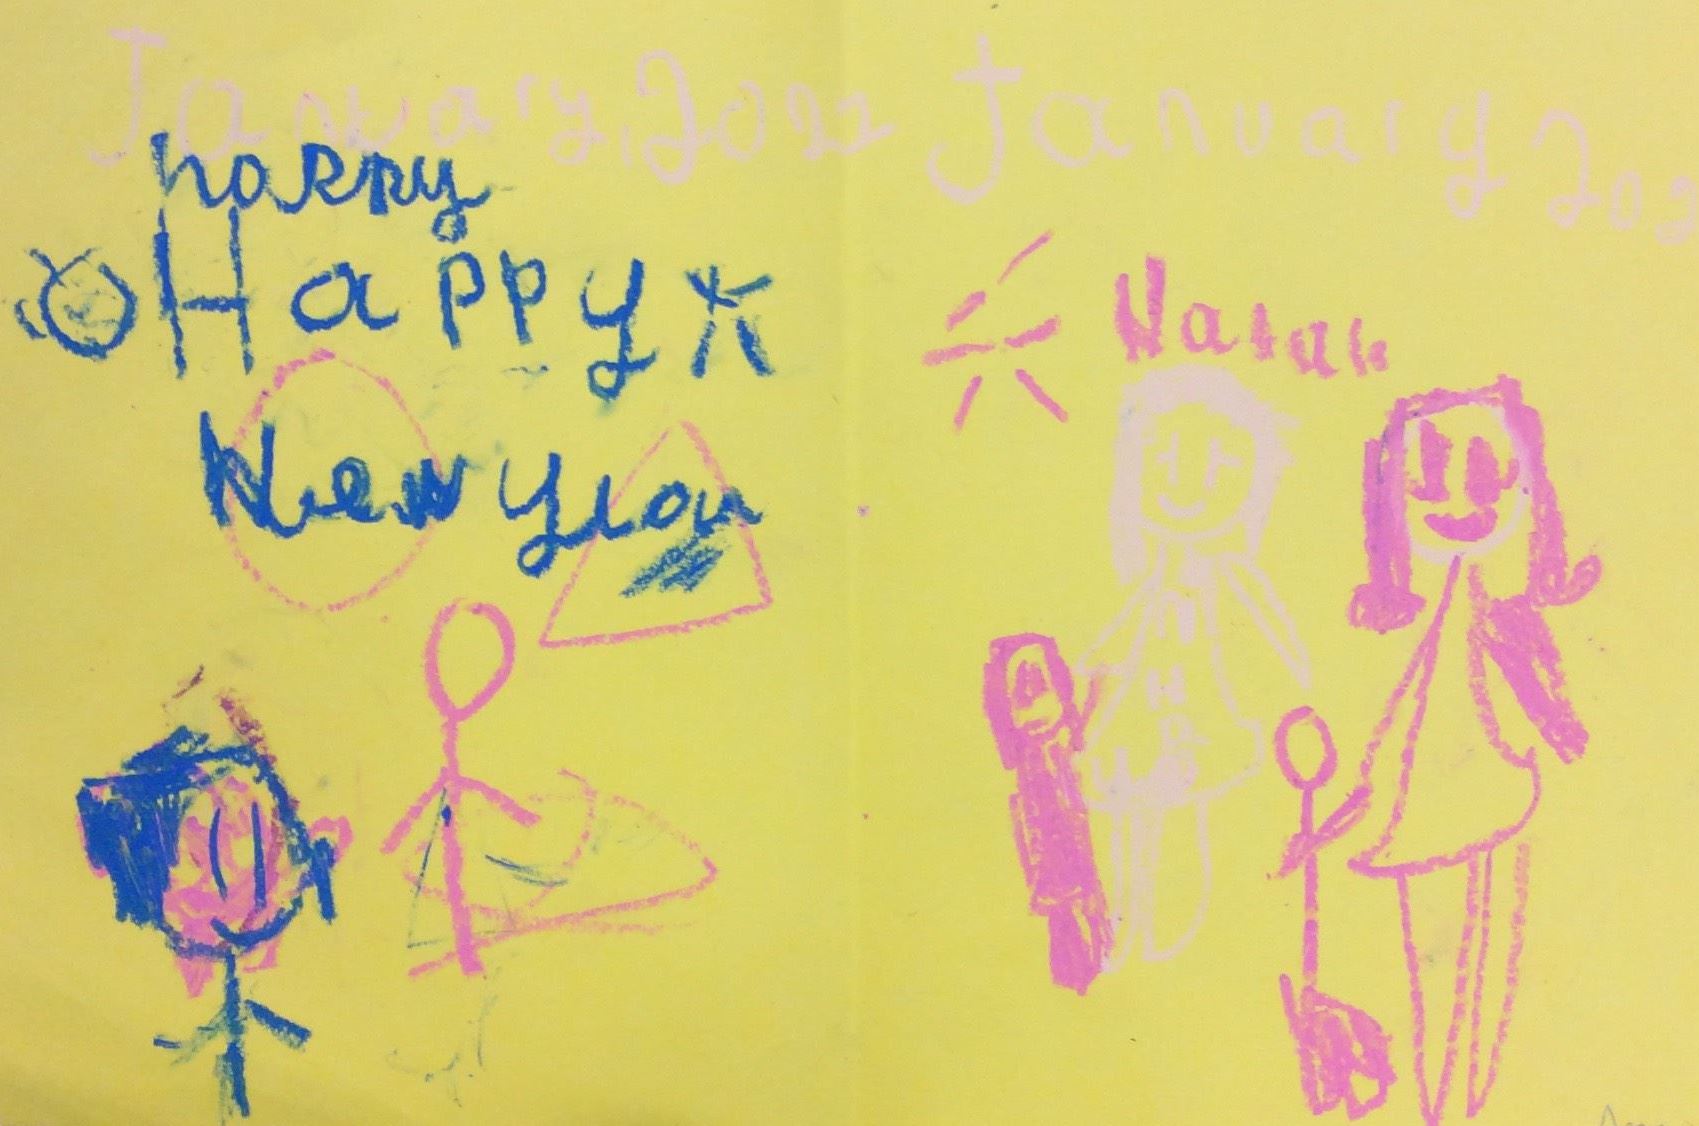 January, 2022
January 202
happy
Happy
New year